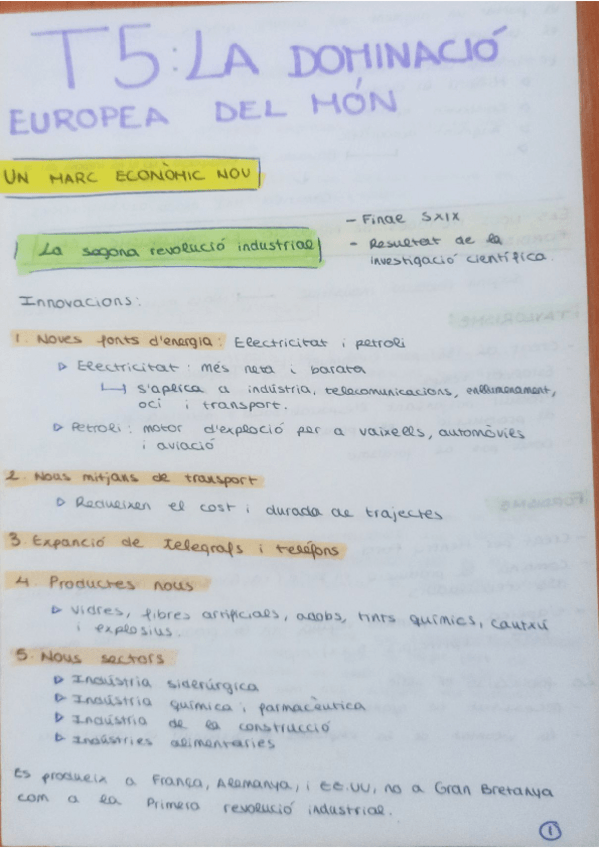 T5: LA DOMINACIÓ
EUROPEA DEL MÓN
UN MARC ECONÒMIC NOU
La segona revolució industrial
- Finae SXIX
- Resultat de la
investigació científica.
Innovacions:
1. Noves fonts d'energia: Electricitat i petroli
▷ Electricitat: més neta i barata
↳ s'aplica a indústria, telecomunicacions, enllumenament,
oci i transport.
▷ Petroli: motor d'exploció per a vaixells, automòvies
i aviació
2. Nous mitjans de transport
▷ Redueixen el cost i durada de trajectes
3. Expanció de telegrafs i telèfons
4. Productes nous
▷ Vidres, fibres artificials, adobs, tints químics, cautxú
i explosius.
5. Nous sectors
▷ Indústria siderúrgica
▷ Indústria química i farmacèutica
▷ Indústria de la construcció
▷ Indústries alimentaries
Es produeix a França, Alemanya, i EE.UU, no a Gran Bretanya
com a la Primera revolució industrial.
1